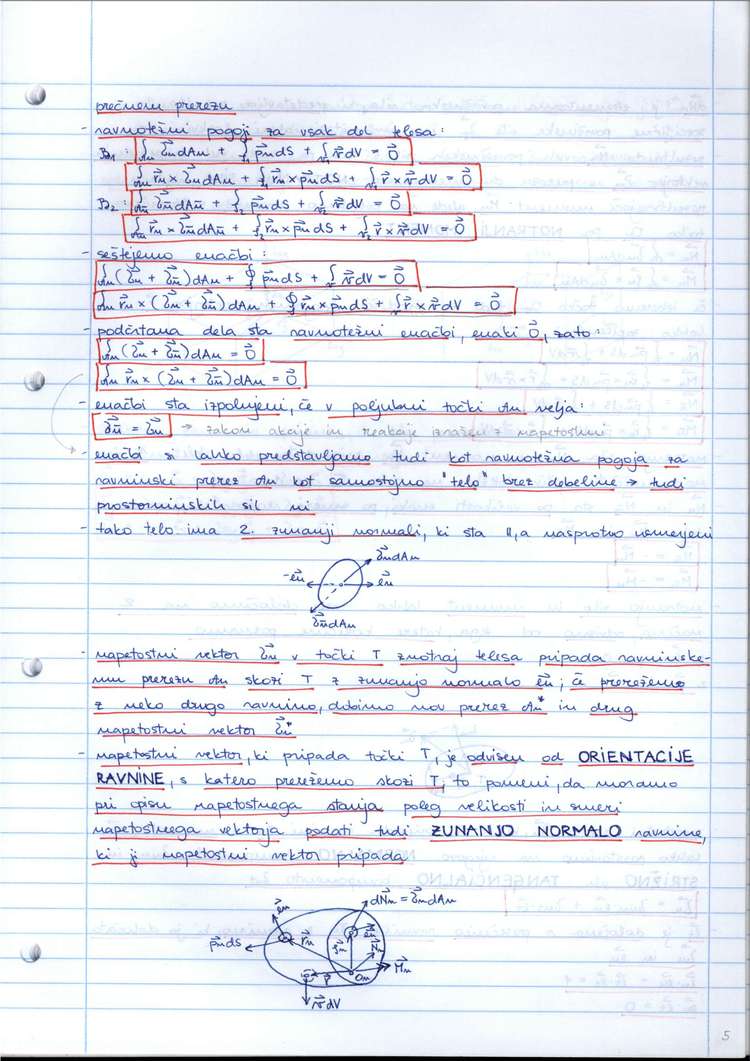 prečnem prerezu
- ravnotežni pogoji za vsak del telesa:
B₁: ∫_An σ⃗n dAn + ∫_S1 p⃗n dS + ∫_V1 v⃗ dV = 0⃗
∫_An r⃗n × σ⃗n dAn + ∫_S1 r⃗n × p⃗n dS + ∫_V1 r⃗ × v⃗ dV = 0⃗
B₂: ∫_An̄ σ⃗n̄ dAn̄ + ∫_S2 p⃗n dS + ∫_V2 v⃗ dV = 0⃗
∫_An̄ r⃗n × σ⃗n̄ dAn̄ + ∫_S2 r⃗n × p⃗n dS + ∫_V2 r⃗ × v⃗ dV = 0⃗
- seštejemo enačbi:
∫_An (σ⃗n + σ⃗n̄) dAn + ∮_S p⃗n dS + ∫_V v⃗ dV = 0⃗
∫_An r⃗n × (σ⃗n + σ⃗n̄) dAn + ∮_S r⃗n × p⃗n dS + ∫_V r⃗ × v⃗ dV = 0⃗
- podčrtana dela sta ravnotežni enačbi, enaki 0⃗, zato:
∫_An (σ⃗n + σ⃗n̄) dAn = 0⃗
∫_An r⃗n × (σ⃗n + σ⃗n̄) dAn = 0⃗
- enačbi sta izpolnjeni, če v poljubni točki An velja:
σ⃗n̄ = σ⃗n → zakon akcije in reakcije izražen z napetostmi
- enačbi si lahko predstavljamo tudi kot ravnotežna pogoja za
ravninski prerez An kot samostojno "telo" brez debeline → tudi
prostorninskih sil ni
- tako telo ima 2. zunanji normali, ki sta ∥, a nasprotno usmerjeni
σ⃗n dAn
-e⃗n e⃗n
σ⃗n̄ dAn
- napetostni vektor σ⃗n v točki T znotraj telesa pripada ravninske-
mu prerezu An skozi T z zunanjo normalo e⃗n; če prerežemo
z neko drugo ravnino, dobimo nov prerez An* in drug
napetostni vektor σ⃗n*
- napetostni vektor, ki pripada točki T, je odvisen od ORIENTACIJE
RAVNINE, s katero prerežemo skozi T; to pomeni, da moramo
pri opisu napetostnega stanja poleg velikosti in smeri
napetostnega vektorja podati tudi ZUNANJO NORMALO ravnine,
ki ji napetostni vektor pripada
e⃗n dN⃗n = σ⃗n dAn
p⃗n dS r⃗n M⃗n
r⃗ On
v⃗ dV
5